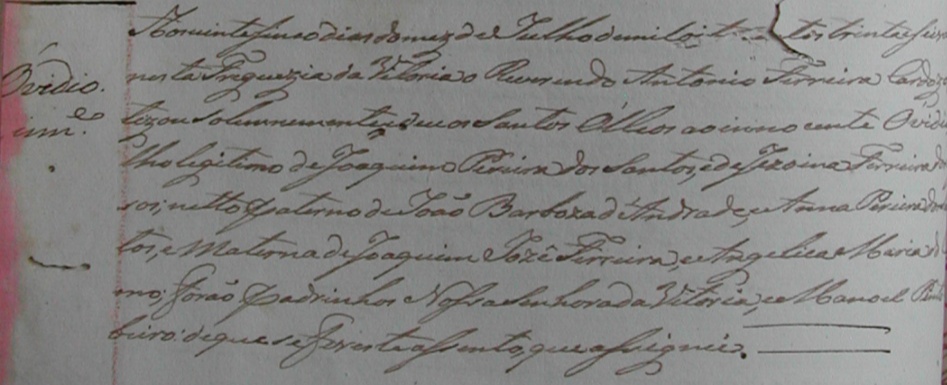 Ovidio.
inn.e
Aos vinte e sinco dias do mez de Julho de mil oit tos trinta e
nesta Freguezia da Vitoria o Reverendo Antonio Ferreira Cardozo
tizou Solemnemente, e deu os Santos Óleos ao innocente Ovidi
lho legitimo de Joaquim Pereira dos Santos, e de Jezoina Ferreira d
sos; netto paterno de João Barboza d'Andrade, e Anna Pereira dos
tos, e Materna de Joaquim Jozé Ferreira, e Angelica Maria d
mo; forão Padrinhos Nossa Senhora da Vitoria, e Manoel Ri
beiro: de que se fez este assento, que assignei.